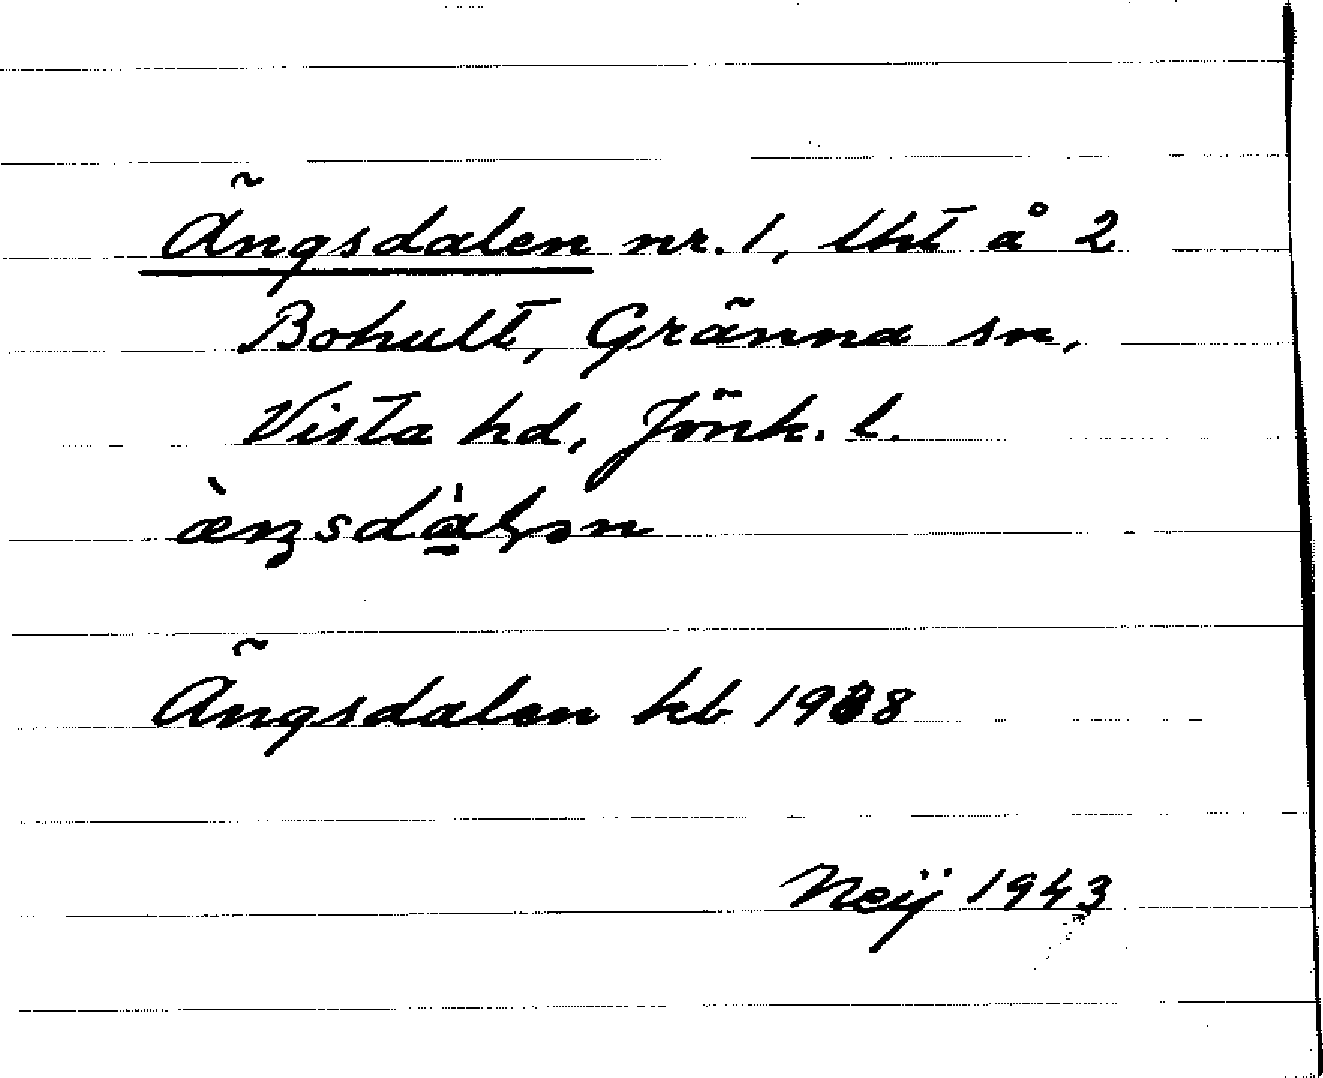 Ängsdalen nr. 1, lht å 2
Bohult, Gränna sn,
Vista hd, Jönk. l.
Ängsdalen kb 1938
Neij 1943